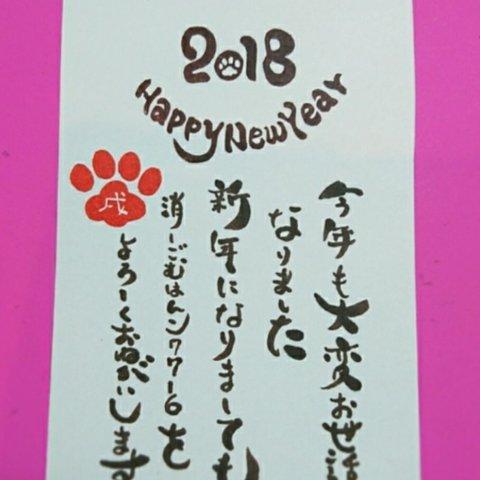 2018
Happy New Year
今年も大変お世話
なりました
新年になりましても
消しごむはんこ7716を
よろしくおねがいします
戌